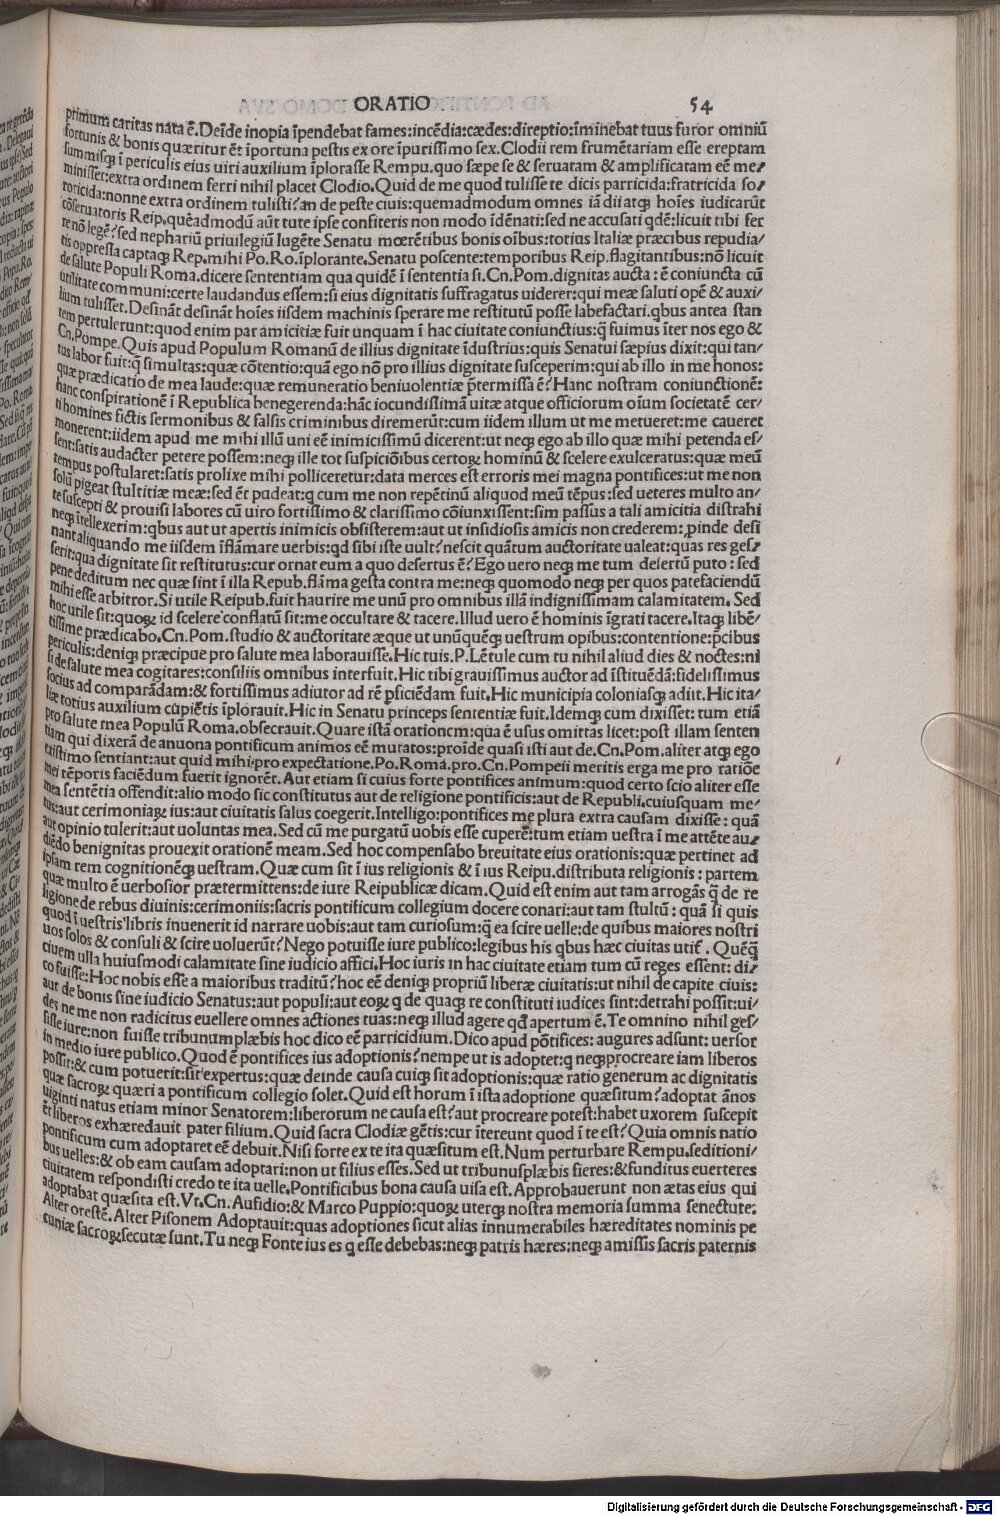 ORATIO 54
primum caritas nata ē. Deīde inopia īpendebat fames: incēdia: cædes: direptio: īminebat tuus furor omniū
fortunis & bonis quæritur ēt īportuna pestis ex ore īpurissimo sex. Clodii rem frumētariam esse ereptam
summisqꝫ ī periculis eius uiri auxilium īplorasse Rempu. quo sæpe se & seruatam & amplificatam eē me/
minisset: extra ordinem ferri nihil placet Clodio. Quid de me quod tulisse te dicis parricida: fratricida so/
roricida: nonne extra ordinem tulisti? an de peste ciuis: quemadmodum omnes iā dii atqꝫ hoīes iudicarūt
cōseruatoris Reip. quēadmodū aūt tute ipse confiteris non modo īdēnati: sed ne accusati qdē: licuit tibi fer
re nō legē? sed nephariū priuilegiū lugēte Senatu mœrētibus bonis oībus: totius Italiæ præcibus repudia/
tis oppressa captaqꝫ Rep. mihi Po. Ro. īplorante. Senatu poscente: temporibus Reip. flagitantibus: nō licuit
de salute Populi Roma. dicere sententiam qua quidē ī sententia si. Cn. Pom. dignitas aucta: ē coniuncta cū
utilitate communi: certe laudandus essem: si eius dignitatis suffragatus uiderer: qui meæ saluti opē & auxi/
lium tulisset. Desināt desināt hoīes iisdem machinis sperare me restitutū posse labefactari. qbus antea stan
tem pertulerunt: quod enim par amicitiæ fuit unquam ī hac ciuitate coniunctius: q̄ fuimus īter nos ego &
Cn. Pompe. Quis apud Populum Romanū de illius dignitate īdustrius: quis Senatui sæpius dixit: qui tan/
tus labor fuit: q̄ simultas: quæ cōtentio: quā ego nō pro illius dignitate susceperim: qui ab illo in me honos:
quæ prædicatio de mea laude: quæ remuneratio beniuolentiæ p̄termissa ē? Hanc nostram coniunctionē:
hanc conspirationē ī Republica benegerenda: hāc iocundissimā uitæ atque officiorum oīum societatē cer/
ti homines fictis sermonibus & falsis criminibus diremerūt: cum iidem illum ut me metueret: me caueret
monerent: iidem apud me mihi illū uni eē inimicissimū dicerent: ut neqꝫ ego ab illo quæ mihi petenda es/
sent: satis audacter petere possem: neqꝫ ille tot suspiciōibus certoꝝ hominū & scelere exulceratus: quæ meū
tempus postularet: satis prolixe mihi polliceretur: data merces est erroris mei magna pontifices: ut me non
solū pigeat stultitiæ meæ: sed ēt pudeat: q cum me non repētinū aliquod meū tēpus: sed ueteres multo an/
te suscepti & prouisi labores cū uiro fortissimo & clarissimo cōiunxissent: sim passus a tali amicitia distrahi
neqꝫ ītellexerim: qbus aut ut apertis inimicis obsisterem: aut ut insidiosis amicis non crederem: ꝓinde desi
nant aliquando me iisdem īflāmare uerbis: qd sibi iste uult? nescit quātum auctoritate ualeat: quas res ges/
serit: qua dignitate sit restitutus: cur ornat eum a quo desertus ē? Ego uero neqꝫ me tum desertū puto: sed
pene deditum nec quæ sint ī illa Repub. flāma gesta contra me: neqꝫ quomodo neqꝫ per quos patefaciendū
mihi esse arbitror. Si utile Reipub. fuit haurire me unū pro omnibus illā indignissimam calamitatem. Sed
hoc utile sit: quoꝝ id scelere conflatū sit: me occultare & tacere. Illud uero ē hominis īgrati tacere. Itaqꝫ libē/
tissime prædicabo. Cn. Pom. studio & auctoritate æque ut unūquēqꝫ uestrum opibus: contentione: p̄cibus
periculis: deniqꝫ præcipue pro salute mea laborauisse. Hic tuis. P. Lētule cum tu nihil aliud dies & noctes: ni
si de salute mea cogitares: consiliis omnibus interfuit. Hic tibi grauissimus auctor ad īstituēdā: fidelissimus
socius ad comparādam: & fortissimus adiutor ad rē ꝑficiēdam fuit. Hic municipia coloniasqꝫ adiit. Hic ita/
liæ totius auxilium cupiētis īplorauit. Hic in Senatu princeps sententiæ fuit. Idemqꝫ cum dixisset: tum etiā
pro salute mea Populū Roma. obsecrauit. Quare istā orationem: qua ē usus omittas licet: post illam senten
tiam qui dixerā de anuona pontificum animos eē mutatos: proīde quasi isti aut de. Cn. Pom. aliter atqꝫ ego
existimo sentiant: aut quid mihi: pro expectatione. Po. Romā. pro. Cn. Pompeii meritis erga me pro ratiōe
mei tēporis faciēdum fuerit ignorēt. Aut etiam si cuius forte pontifices animum: quod certo scio aliter esse
mea sentētia offendit: alio modo sic constitutus aut de religione pontificis: aut de Republi. cuiusquam me/
tus: aut cerimoniaꝝ ius: aut ciuitatis salus coegerit. Intelligo: pontifices me plura extra causam dixisse: quā
aut opinio tulerit: aut uoluntas mea. Sed cū me purgatū uobis esse cuperē: tum etiam uestra ī me attēte au/
diēdo benignitas prouexit orationē meam. Sed hoc compensabo breuitate eius orationis: quæ pertinet ad
ipsam rem cognitionēqꝫ uestram. Quæ cum sit ī ius religionis & ī ius Reipu. distributa religionis: partem
quæ multo ē uerbosior prætermittens: de iure Reipublicæ dicam. Quid est enim aut tam arrogās q̄ de re
ligione de rebus diuinis: cerimoniis: sacris pontificum collegium docere conari: aut tam stultū: quā si quis
quod ī uestris libris inuenerit id narrare uobis: aut tam curiosum: q̄ ea scire uelle: de quibus maiores nostri
uos solos & consuli & scire uoluerūt? Nego potuisse iure publico: legibus his qbus hæc ciuitas utiť. Quēq̄
ciuem ulla huiusmodi calamitate sine iudicio affici. Hoc iuris in hac ciuitate etiam tum cū reges essent: di/
co fuisse: Hoc nobis esse a maioribus traditū? hoc eē deniqꝫ propriū liberæ ciuitatis: ut nihil de capite ciuis:
aut de bonis sine iudicio Senatus: aut populi: aut eoꝝ q de quaqꝫ re constituti iudices sint: detrahi possit: ui/
des ne me non radicitus euellere omnes actiones tuas: neqꝫ illud agere qđ apertum ē. Te omnino nihil ges/
sisse iure: non fuisse tribunum plæbis hoc dico eē parricidium. Dico apud pōtifices: augures adsunt: uersor
in medio iure publico. Quod ē pontifices ius adoptionis? nempe ut is adoptet: q neqꝫ procreare iam liberos
possit: & cum potuerit: sit expertus: quæ deinde causa cuiqꝫ sit adoptionis: quæ ratio generum ac dignitatis
quæ sacroꝝ quæri a pontificum collegio solet. Quid est horum ī ista adoptione quæsitum? adoptat ānos
uiginti natus etiam minor Senatorem: liberorum ne causa est? aut procreare potest: habet uxorem suscepit
ēt liberos exhæredauit pater filium. Quid sacra Clodiæ gētis: cur ītereunt quod ī te est? Quia omnis natio
pontificum cum adoptaret eē debuit. Nisi forte ex te ita quæsitum est. Num perturbare Rempu. seditioni/
bus uelles: & ob eam causam adoptari: non ut filius esses. Sed ut tribunus plæbis fieres: & funditus euerteres
ciuitatem respondisti credo te ita uelle. Pontificibus bona causa uisa est. Approbauerunt non ætas eius qui
adoptabat quæsita est. Vt. Cn. Aufidio: & Marco Puppio: quoꝝ uterqꝫ nostra memoria summa senectute:
Alter orestē. Alter Pisonem Adoptauit: quas adoptiones sicut alias innumerabiles hæreditates nominis pe
cuniæ sacroꝝ secutæ sunt. Tu neqꝫ Fonteius es q esse debebas: neqꝫ patris hæres: neqꝫ amissis sacris paternis
Digitalisierung gefördert durch die Deutsche Forschungsgemeinschaft - DFG